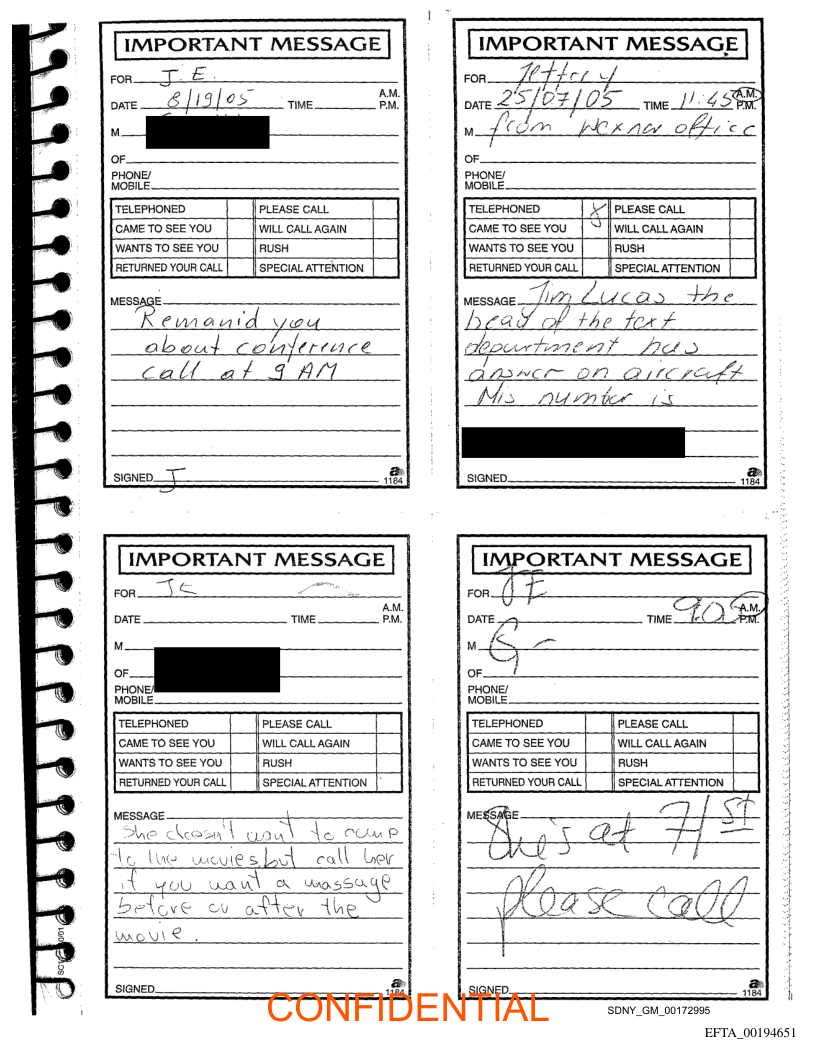 IMPORTANT MESSAGE
FOR J.E.
DATE 8/19/05 TIME A.M. P.M.
M
OF
PHONE/
MOBILE
TELEPHONED PLEASE CALL
CAME TO SEE YOU WILL CALL AGAIN
WANTS TO SEE YOU RUSH
RETURNED YOUR CALL SPECIAL ATTENTION
MESSAGE
Remanid you
about conference
call at 9 AM
SIGNED J
1184
IMPORTANT MESSAGE
FOR Jeffrey
DATE 25/07/05 TIME 11:45 A.M. P.M.
M from Wexner office
OF
PHONE/
MOBILE
TELEPHONED X PLEASE CALL
CAME TO SEE YOU WILL CALL AGAIN
WANTS TO SEE YOU RUSH
RETURNED YOUR CALL SPECIAL ATTENTION
MESSAGE Jim Lucas the
head of the text
department has
answer on aircraft
His number is
SIGNED
1184
IMPORTANT MESSAGE
FOR JE
DATE TIME A.M. P.M.
M
OF
PHONE/
MOBILE
TELEPHONED PLEASE CALL
CAME TO SEE YOU WILL CALL AGAIN
WANTS TO SEE YOU RUSH
RETURNED YOUR CALL SPECIAL ATTENTION
MESSAGE
She doesn't want to come
to the movies but call her
if you want a massage
before or after the
movie.
SIGNED
1184
IMPORTANT MESSAGE
FOR JE
DATE TIME 9.05 A.M. P.M.
M G-
OF
PHONE/
MOBILE
TELEPHONED PLEASE CALL
CAME TO SEE YOU WILL CALL AGAIN
WANTS TO SEE YOU RUSH
RETURNED YOUR CALL SPECIAL ATTENTION
MESSAGE
She's at 71 ST
please call
SIGNED
1184
CONFIDENTIAL
SDNY_GM_00172995
EFTA_00194651